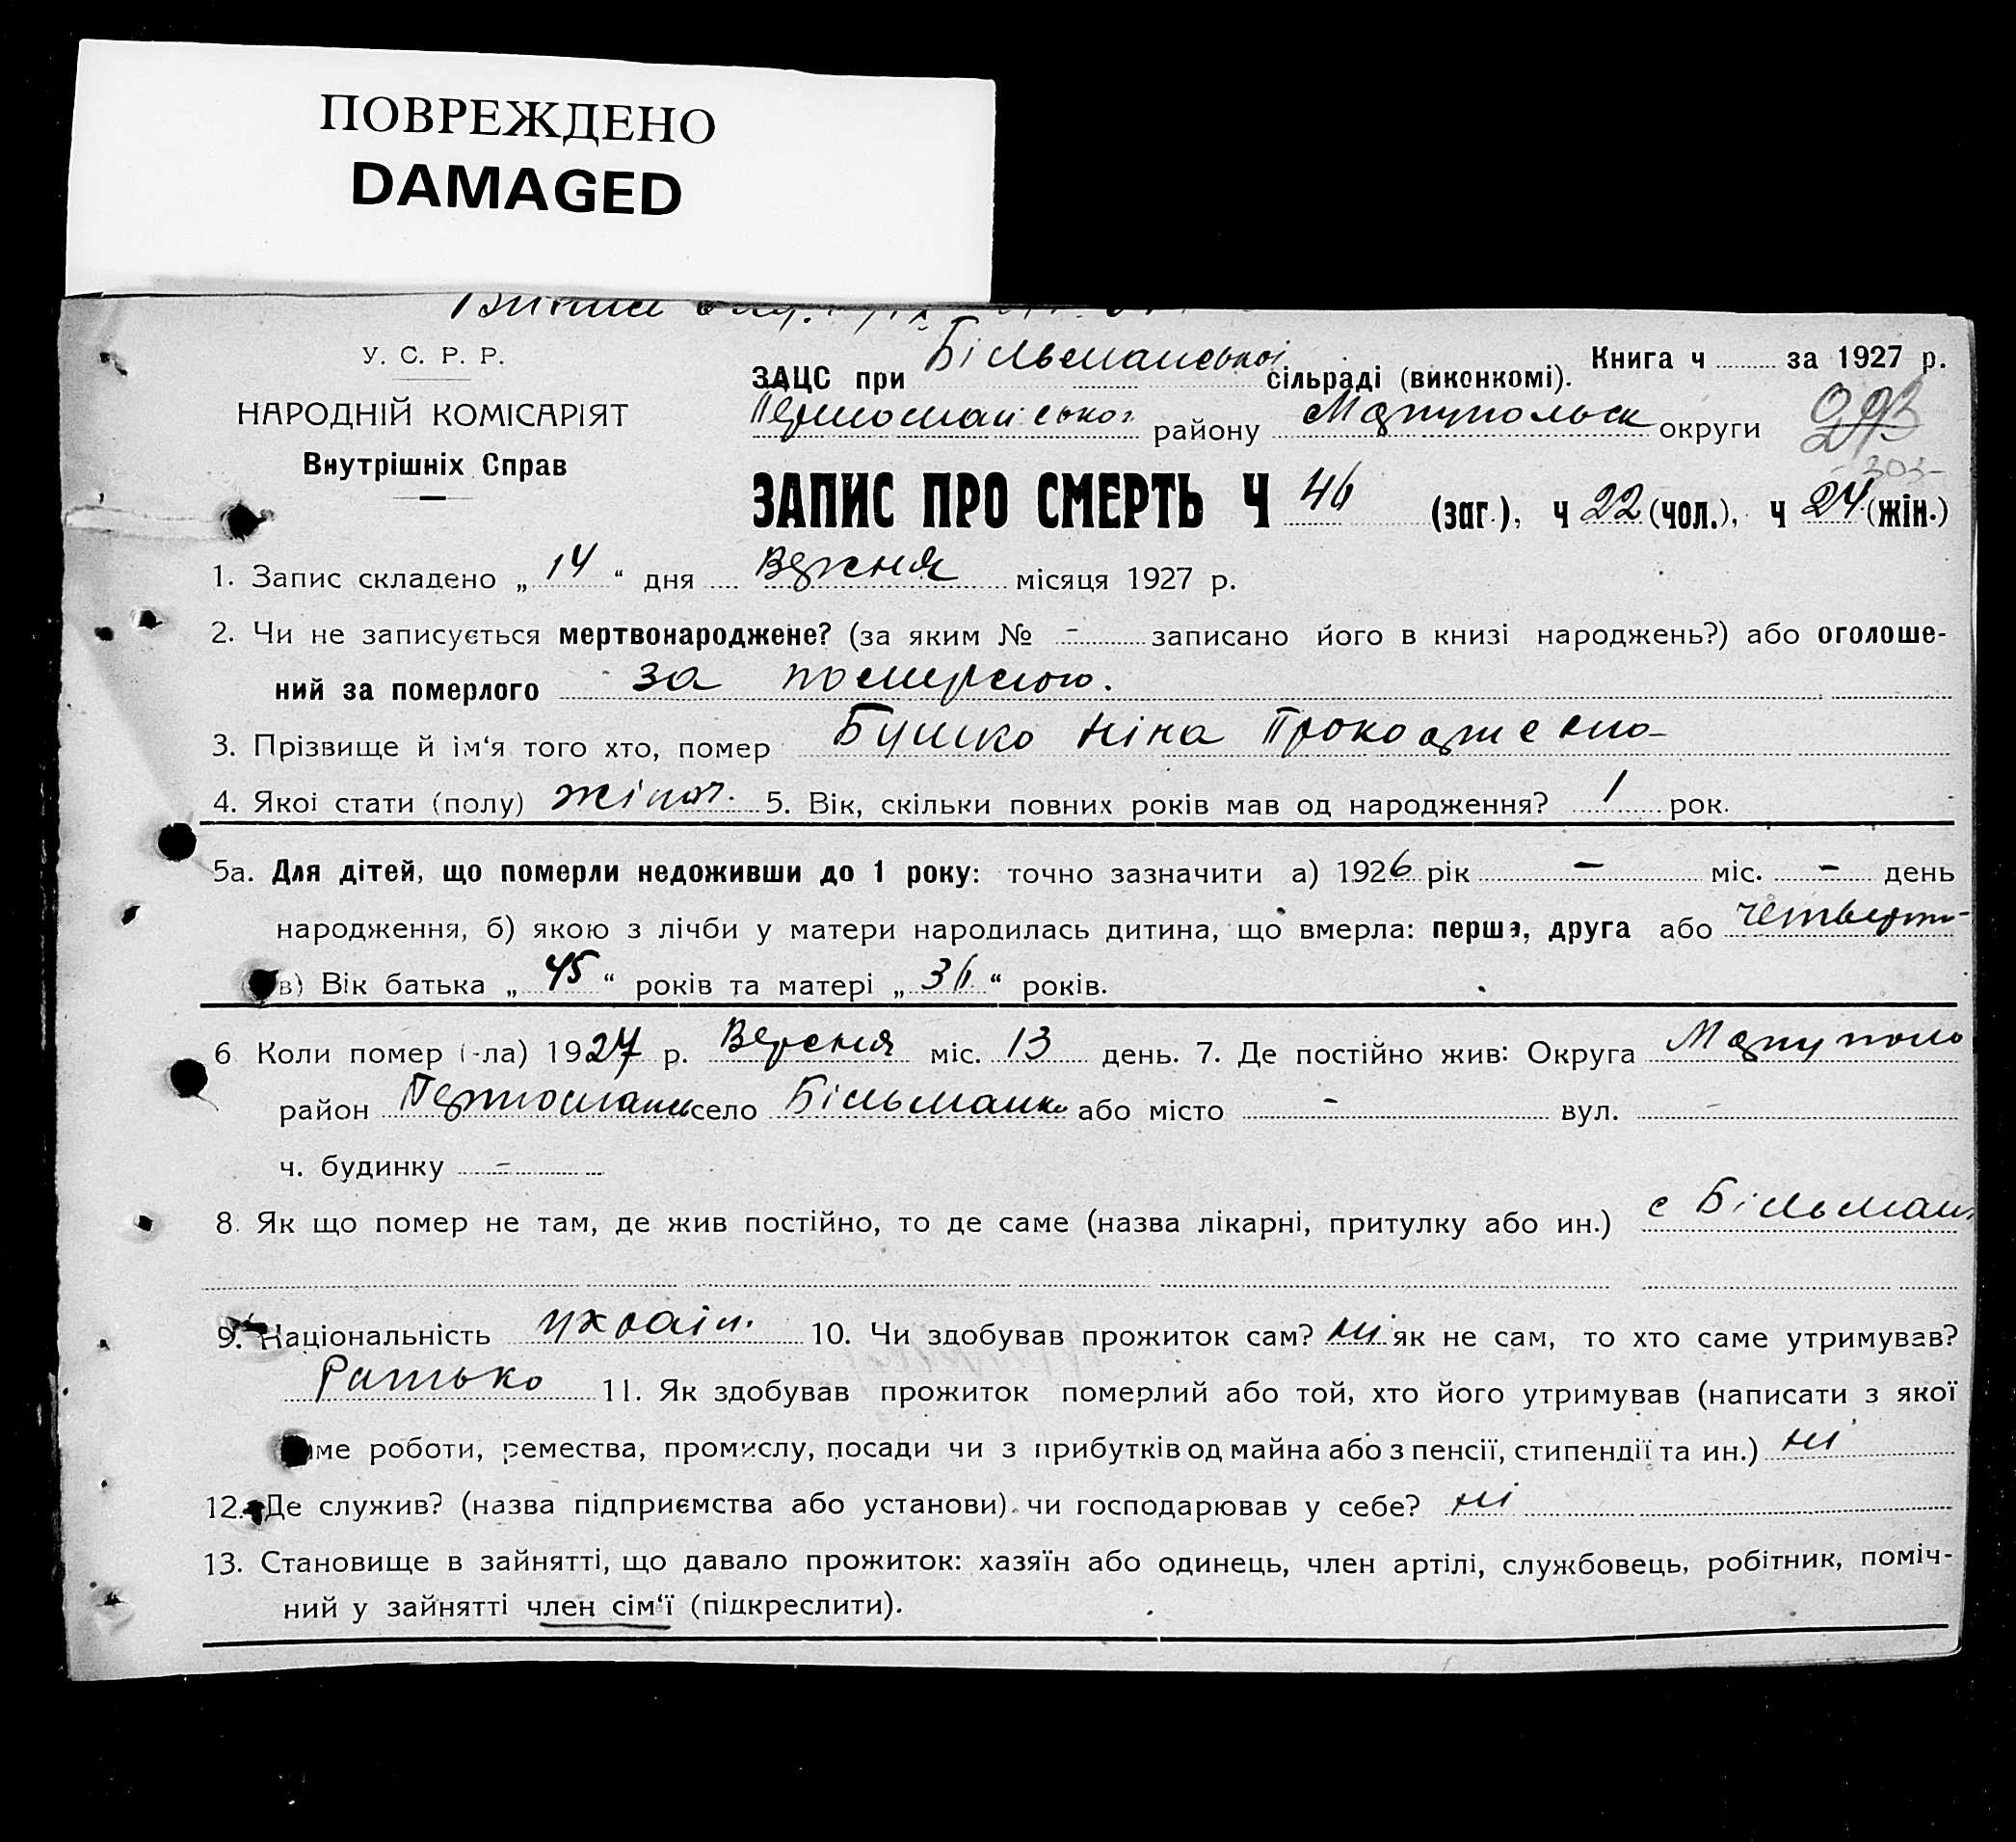 ПОВРЕЖДЕНО
DAMAGED
У. С. Р. Р.
НАРОДНІЙ КОМІСАРІЯТ
Внутрішніх Справ
Книга ч за 1927 р.
ЗАЦС при Більманської сільраді (виконкомі).
Первомайської району Маріупольск округи
293
303
ЗАПИС ПРО СМЕРТЬ Ч 46 (заг.), ч 22 (чол.), ч 24 (жін.)
1. Запис складено „ 14 “ дня Вересня місяця 1927 р.
2. Чи не записується мертвонароджене? (за яким № - записано його в книзі народжень?) або оголоше-
ний за померлого за померлою.
3. Прізвище й ім‘я того хто, помер Бушко Ніна
4. Якої стати (полу) жіноч. 5. Вік, скільки повних років мав од народження? 1 рок.
5а. Для дітей, що померли недоживши до 1 року: точно зазначити а) 1926 рік - міс. - день
народження, б) якою з лічби у матери народилась дитина, що вмерла: перша, друга або четверта
в) Вік батька „ 45 “ років та матері „ 36 “ років.
6. Коли помер (-ла) 1927 р. Вересня міс. 13 день. 7. Де постійно жив: Округа Маріуполь
район Первомайськ село Більманка або місто - вул. -
ч. будинку -
8. Як що помер не там, де жив постійно, то де саме (назва лікарні, притулку або ин.) с Більман
9. Національність україн. 10. Чи здобував прожиток сам? ні як не сам, то хто саме утримував?
Батько 11. Як здобував прожиток померлий або той, хто його утримував (написати з якої
саме роботи, ремества, промислу, посади чи з прибутків од майна або з пенсії, стипендії та ин.) ні
12. Де служив? (назва підприємства або установи) чи господарював у себе? ні
13. Становище в зайнятті, що давало прожиток: хазяїн або одинець, член артілі, службовець, робітник, поміч-
ний у зайнятті член сім‘ї (підкреслити).